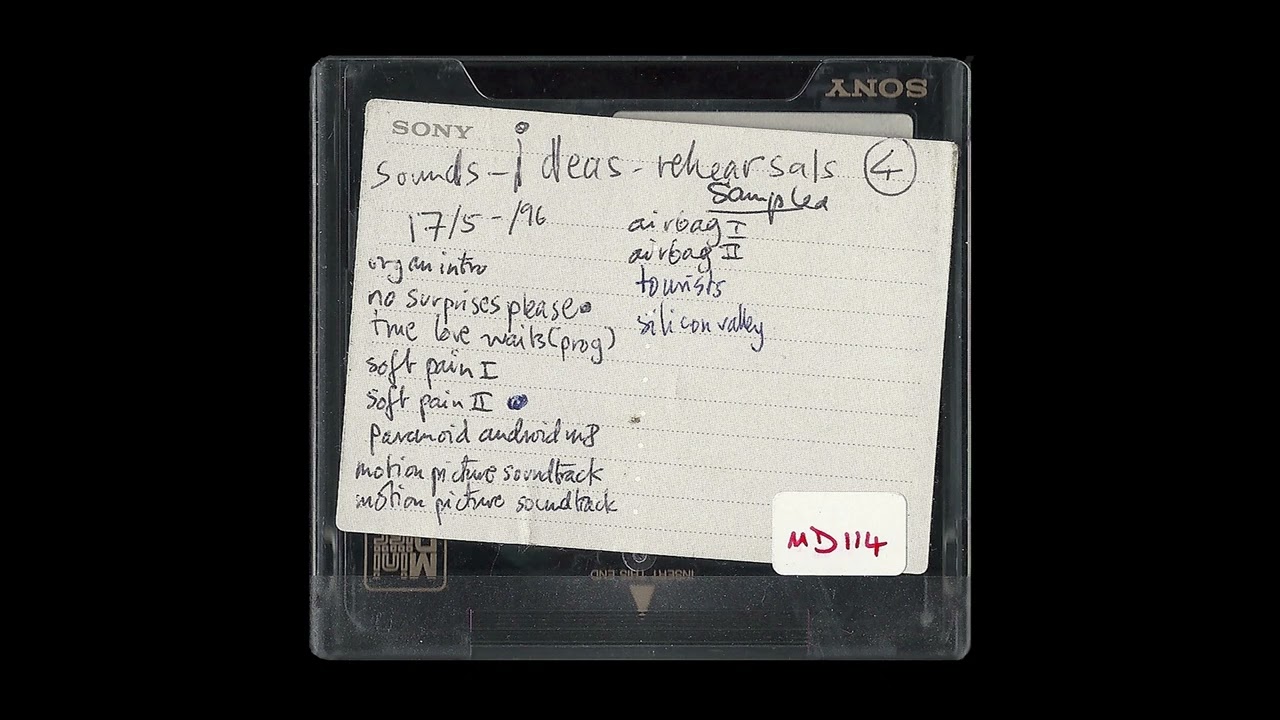 SONY
SONY
sounds - ideas - rehearsals 4
Sampled
17/5-/96
organ intro
no surprises please
true love waits (prog)
soft pain I
soft pain II
paranoid android
motion picture soundtrack
motion picture soundtrack
airbag I
airbag II
tourists
silicon valley
MD114
Mini Disc
INSERT THIS END